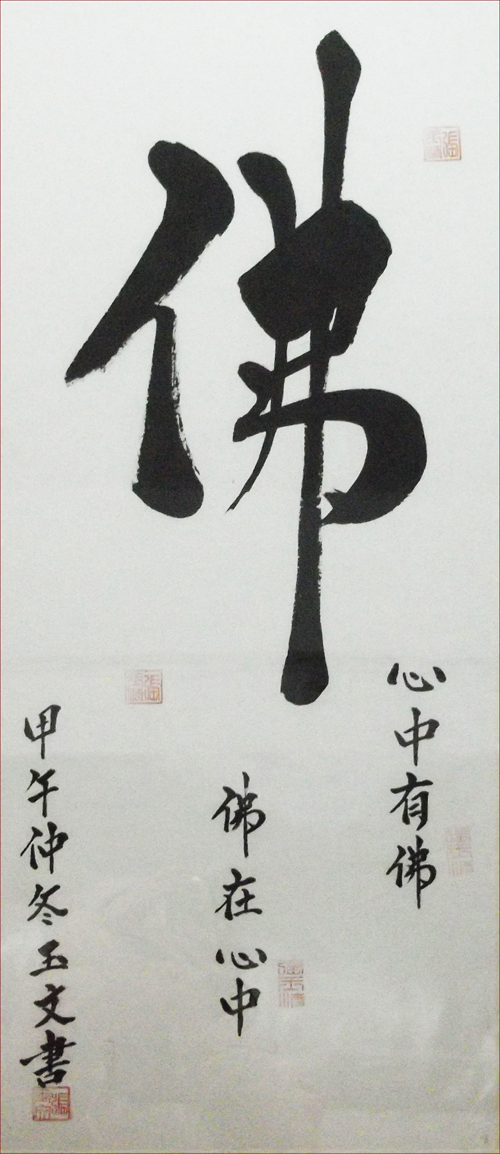 佛
心中有佛
佛在心中
甲午仲冬玉文書